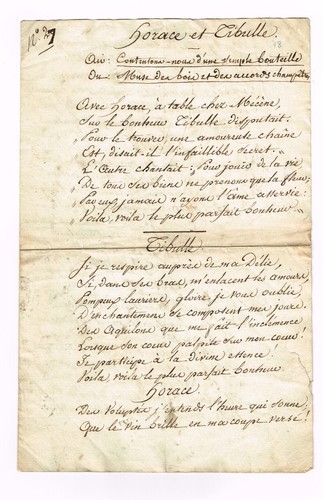 n.° 7
18
Horace et Tibulle
Air: Contentons-nous d'une simple bouteille
Ou: Muse des bois et des accords champêtres
Avec Horace, à table chez Mécène,
Sur le bonheur Tibulle disputait.
Pour le trouver, une amoureuse chaîne
Est, disait-il, l'infaillible secret.
L'autre chantait: Pour jouir de la vie
De tous ses biens ne prenons que la fleur;
jamais n'ayons l'âme asservie:
Voilà, voilà le plus parfait bonheur.
Tibulle
Si je respire auprès de ma Délie,
Si, dans ses bras, m'enlacent les amours,
Pompeux lauriers, gloire, je vous oublie,
D'enchantemens se composent mes jours.
Des Aquilons que me fait l'inclémence
Lorsque son coeur palpite sur mon coeur!
Je participe à la divine essence:
Voilà, voilà le plus parfait bonheur.
Horace
Des Voluptés j'entends l'heure qui sonne,
Que le vin brille en ma coupe versé!